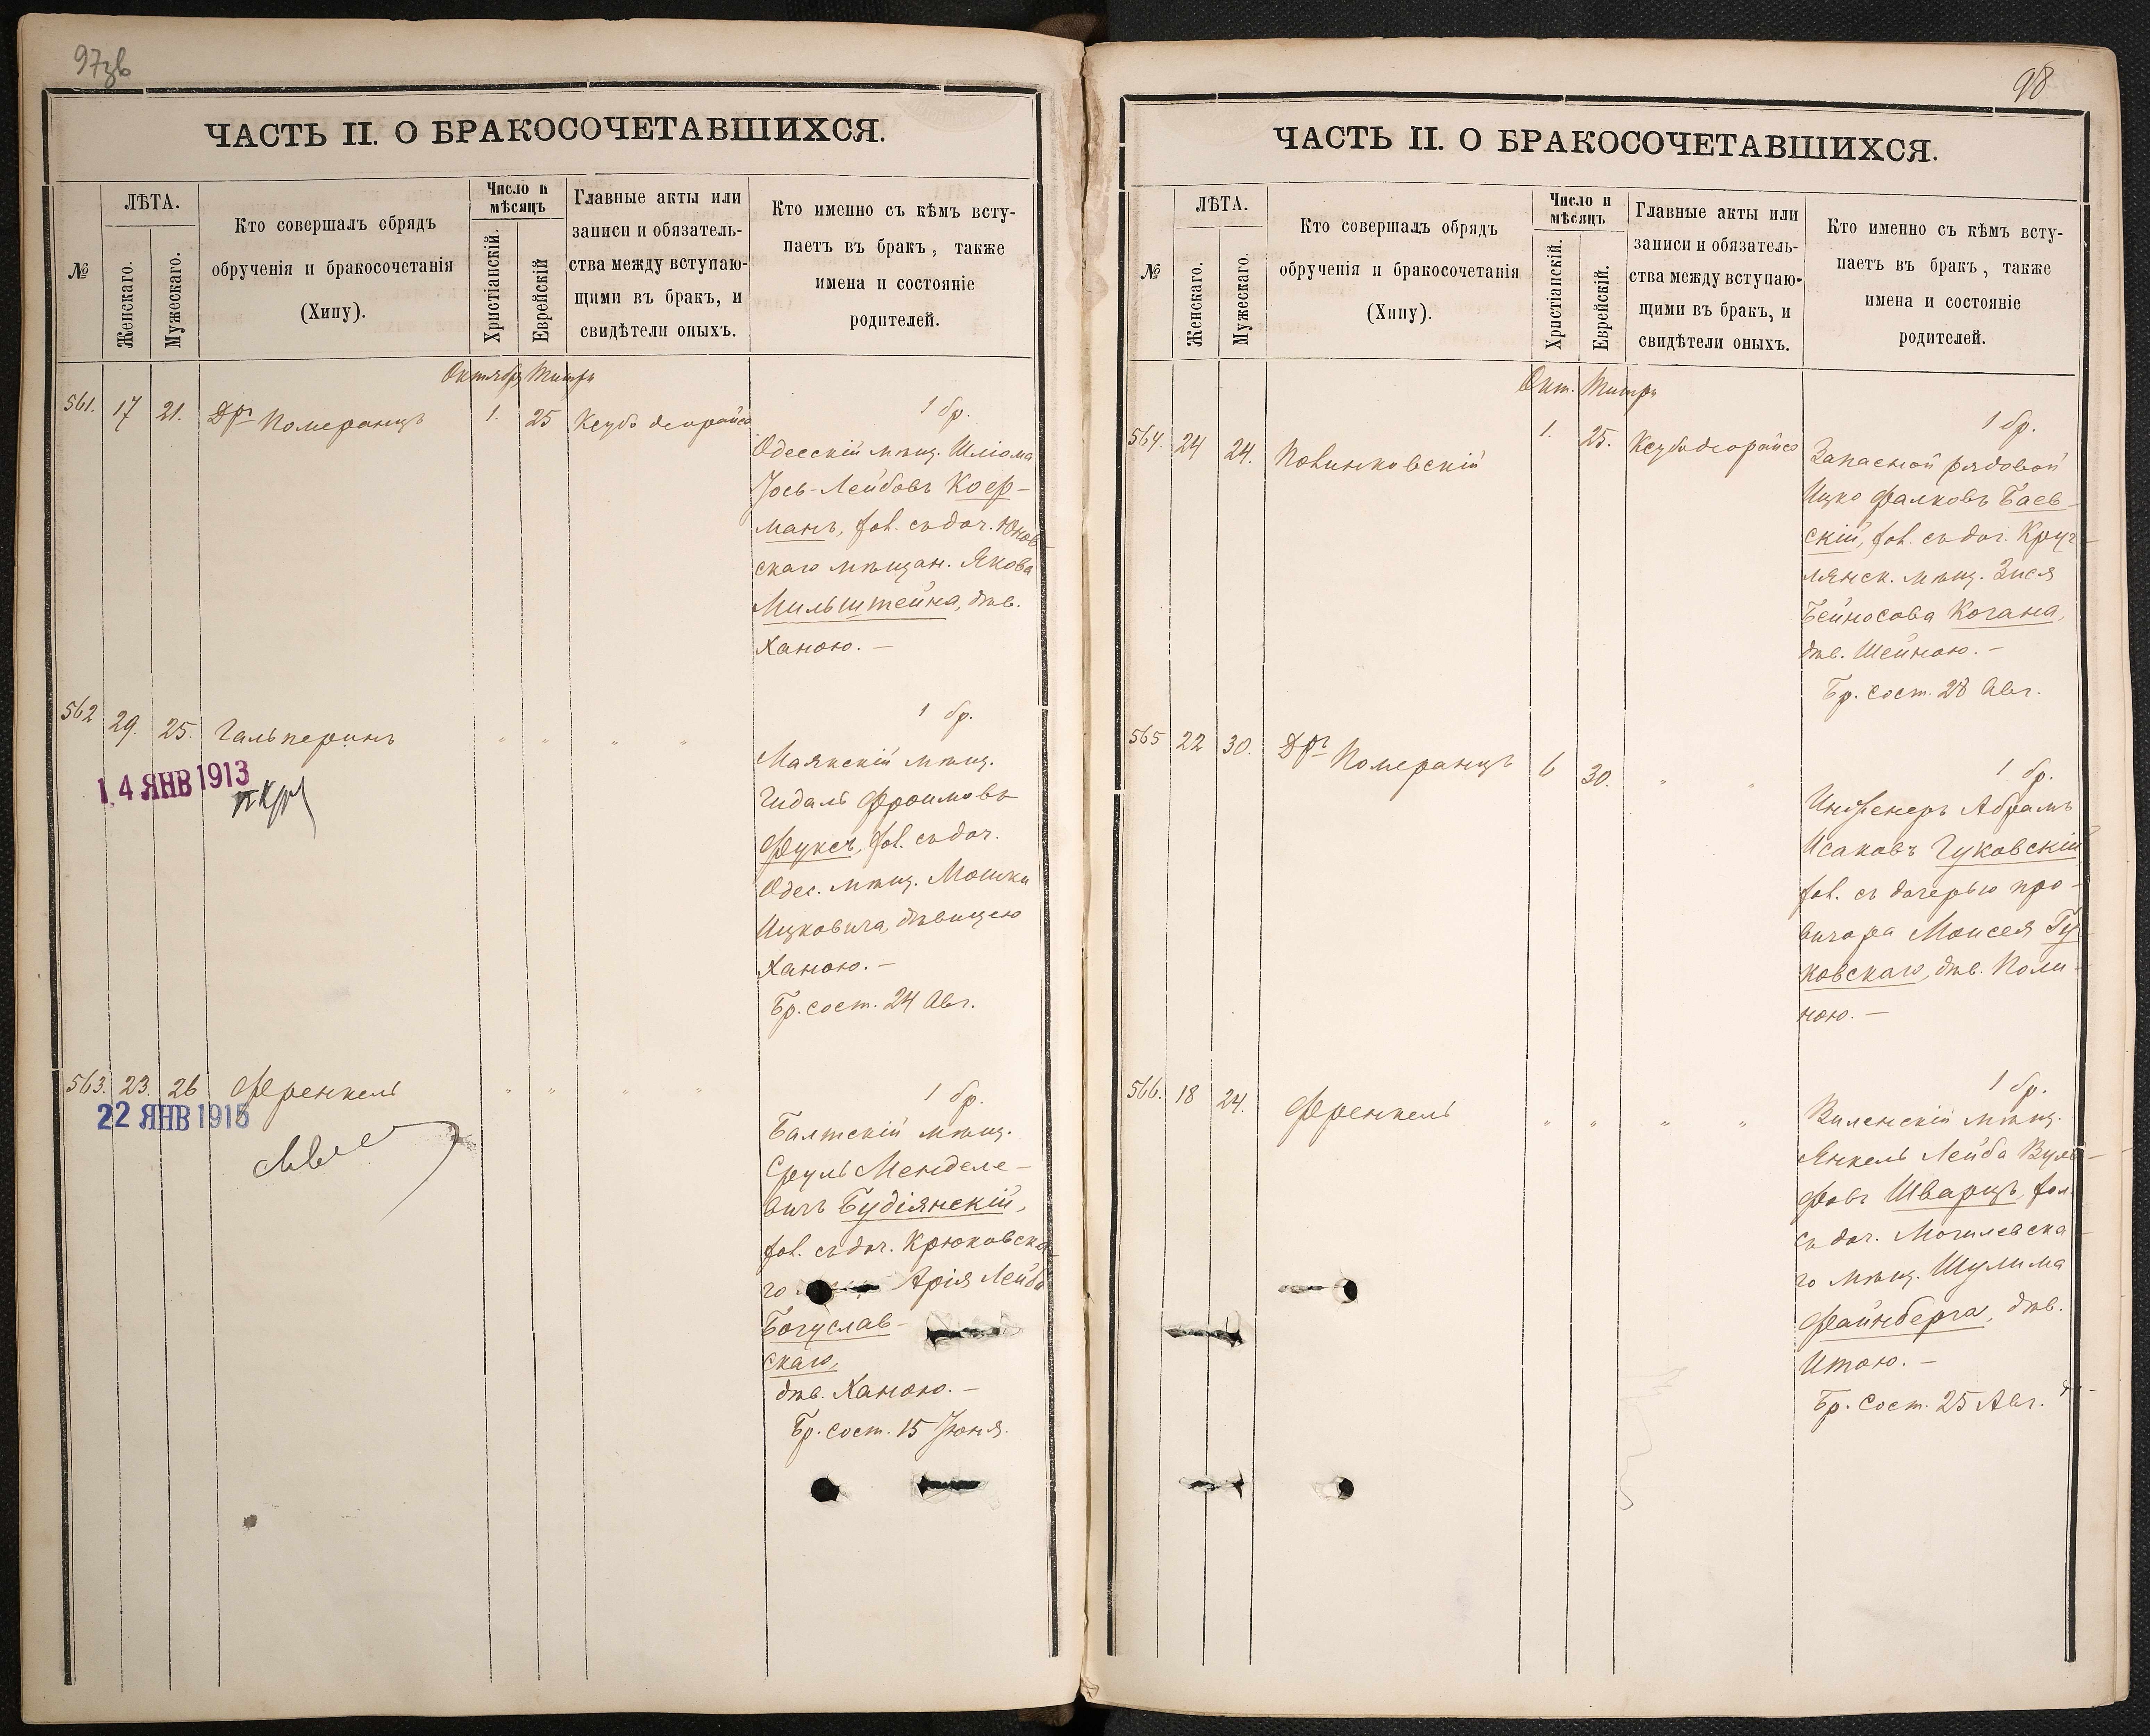 97зв
ЧАСТЬ II. О БРАКОСОЧЕТАВШИХСЯ.
№
ЛѢТА.
Женскаго.
Мужескаго.
Кто совершалъ обрядъ
обрученія и бракосочетанія
(Хипу).
Число и
мѣсяцъ
Христіанскій.
Еврейскій
Главные акты или
записи и обязатель-
ства между вступаю-
щими въ бракъ, и
свидѣтели оныхъ.
Кто именно съ кѣмъ всту-
паетъ въ бракъ, также
имена и состояніе
родителей.
Октября Тишри
561. 17 21. Дръ Померанцъ 1. 25 Ксубо деорайсо
1 бр.
Одесскій мѣщ. Шліома
Іось-Лейбовъ Коф-
манъ, хол. съ доч.
скаго мѣщан. Якова
Мильштейна, дѣв.
Ханою. —
562 29. 25. Гальперинъ " " " "
14 ЯНВ 1913
1 бр.
Маякскій мѣщ.
Гидаль Фроимовъ
Фуксъ, хол. съ доч.
Одес. мѣщ. Мошки
Ицковича, дѣвицею
Ханою. —
Бр. сост. 24 Авг.
563. 23. 26 Френкель " " " "
22 ЯНВ 1915
1 бр.
Балтскій мѣщ.
Сруль Менделе-
вичъ Будіянскій,
хол. съ доч. Крюковска-
го Арія Лейба
Богуслав-
скаго,
дѣв. Ханою. —
Бр. сост. 15 Іюня.
98
ЧАСТЬ II. О БРАКОСОЧЕТАВШИХСЯ.
№
ЛѢТА.
Женскаго.
Мужескаго.
Кто совершалъ обрядъ
обрученія и бракосочетанія
(Хипу).
Число и
мѣсяцъ
Христіанскій.
Еврейскій.
Главные акты или
записи и обязатель-
ства между вступаю-
щими въ бракъ, и
свидѣтели оныхъ.
Кто именно съ кѣмъ всту-
паетъ въ бракъ, также
имена и состояніе
родителей.
Окт. Тишри
564. 24 24. Повинковскій 1. 25. Ксубо деорайсо
1 бр.
Запасной рядовой
Ицко Фалковъ Баев-
скій, хол. съ доч. Круг-
лянск. мѣщ. Зися
Бейносова Когана,
дѣв. Шейною. —
Бр. сост. 28 Авг.
565 22 30. Дръ Померанцъ 6 30. " "
1 бр.
Инженеръ Абрамъ
Исаковъ Гуковскій
хол. съ дочерью про-
визора Моисея Гу-
ковскаго, дѣв. Поли-
ною. —
566. 18 24. Френкель " " " "
1 бр.
Виленскій мѣщ.
Янкель Лейба Вуль-
фовъ Шварцъ, хол.
съ доч. Могилевска-
го мѣщ. Шулима
Файнберга, дѣв.
Итою. —
Бр. сост. 25 Авг.